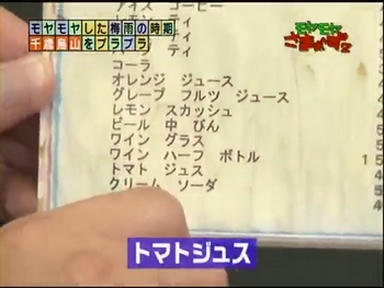 モヤモヤした梅雨の時期
千歳烏山をブラブラ
モヤモヤ
さまぁ~ず2
アイス コーヒー
ティ
ティ
ティ
コーラ
オレンジ ジュース
グレープ フルツ ジュース
レモン スカッシュ
ビール 中 びん
ワイン グラス
ワイン ハーフ ボトル 1
トマト ジュス
クリーム ソーダ
トマトジュス